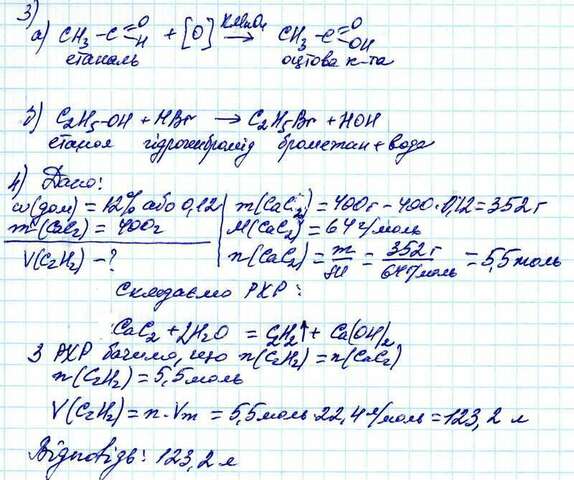 3)
а) CH₃-C=O H + [O] KMnO₄ → CH₃-C=O OH
етаналь оцтова к-та
б) C₂H₅-OH + HBr → C₂H₅Br + HOH
етанол гідрогенбромід брометан + вода
4) Дано:
ω(дом) = 12% або 0,12
m(CaC₂) = 400г
V(C₂H₂) - ?
m(CaC₂) = 400г - 400·0,12 = 352 г
M(CaC₂) = 64 г/моль
n(CaC₂) = m/M = 352 г/64 г/моль = 5,5 моль
Складаємо РХР:
CaC₂ + 2H₂O = C₂H₂↑ + Ca(OH)₂
З РХР бачимо, що n(C₂H₂) = n(CaC₂)
n(C₂H₂) = 5,5 моль
V(C₂H₂) = n·Vm = 5,5 моль·22,4 л/моль = 123,2 л
Відповідь: 123,2 л